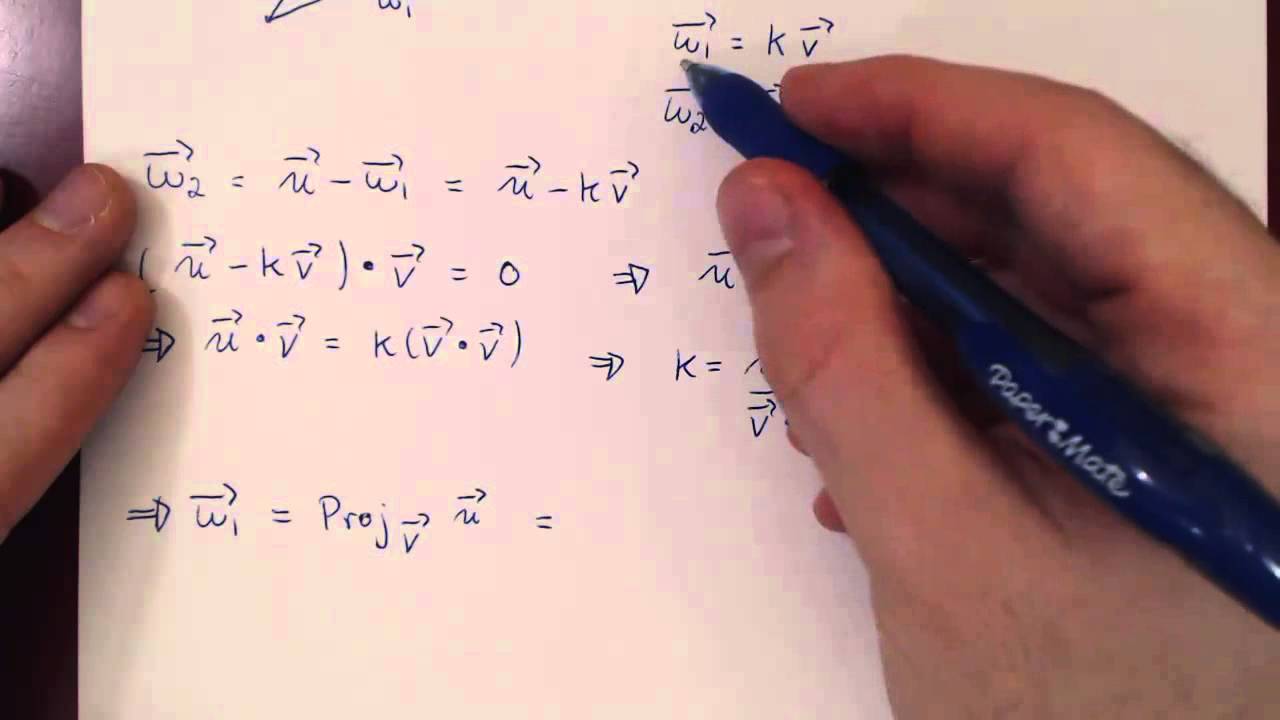 w⃗₁
w⃗₁ = k v⃗
w⃗₂
w⃗₂ = u⃗ − w⃗₁ = u⃗ − k v⃗
( u⃗ − k v⃗ ) • v⃗ = 0 ⇒ u⃗
⇒ u⃗ • v⃗ = k ( v⃗ • v⃗ ) ⇒ k =
v⃗
⇒ w⃗₁ = Proj_v⃗ u⃗ =
Paper Mate